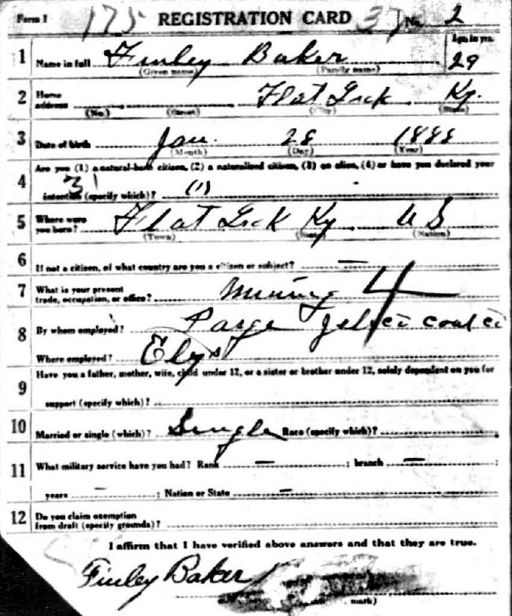 Form 1 175 REGISTRATION CARD 37 No. 2
1 Name in full Finley Baker Age in yrs. 29
(Given name) (Family name)
2 Home address Flat Lick Ky.
(No.) (Street) (City) (State)
3 Date of birth Jan. 28 1888
(Month) (Day) (Year)
Are you (1) a natural-born citizen, (2) a naturalized citizen, (3) an alien, (4) or have you declared your
4 intention (specify which)? (1)
5 Where were you born? Flat Lick Ky U S
(Town) (State) (Nation)
6 If not a citizen, of what country are you a citizen or subject? —
7 What is your present trade, occupation, or office? Mining 4
8 By whom employed? Coal Co
Where employed? Elys
9 Have you a father, mother, wife, child under 12, or a sister or brother under 12, solely dependent on you for
support (specify which)?
10 Married or single (which)? Single Race (specify which)?
11 What military service have you had? Rank — ; branch —
years — ; Nation or State —
12 Do you claim exemption from draft (specify grounds)?
I affirm that I have verified above answers and that they are true.
Finley Baker
mark)